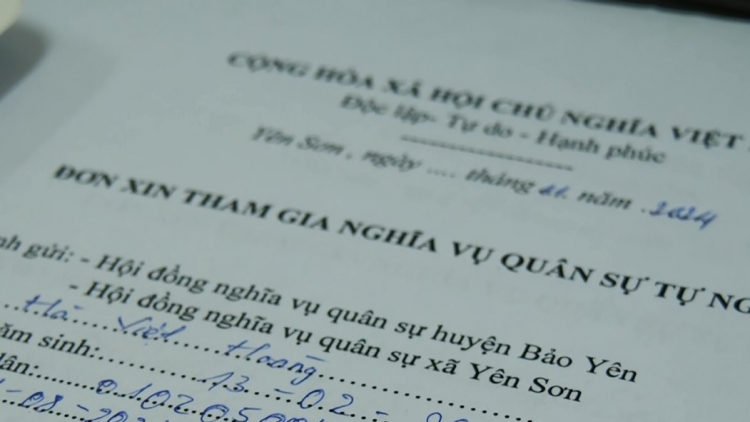 CỘNG HÒA XÃ HỘI CHỦ NGHĨA VIỆT
Độc lập- Tự do - Hạnh phúc
Yên Sơn, ngày .... tháng 11. năm .2024
ĐƠN XIN THAM GIA NGHĨA VỤ QUÂN SỰ TỰ NG
nh gửi: - Hội đồng nghĩa vụ quân sự huyện Bảo Yên
- Hội đồng nghĩa vụ quân sự xã Yên Sơn
Hà Việt Hoàng
ăm sinh: 13 - 02 -
dân: 010205
-08-202